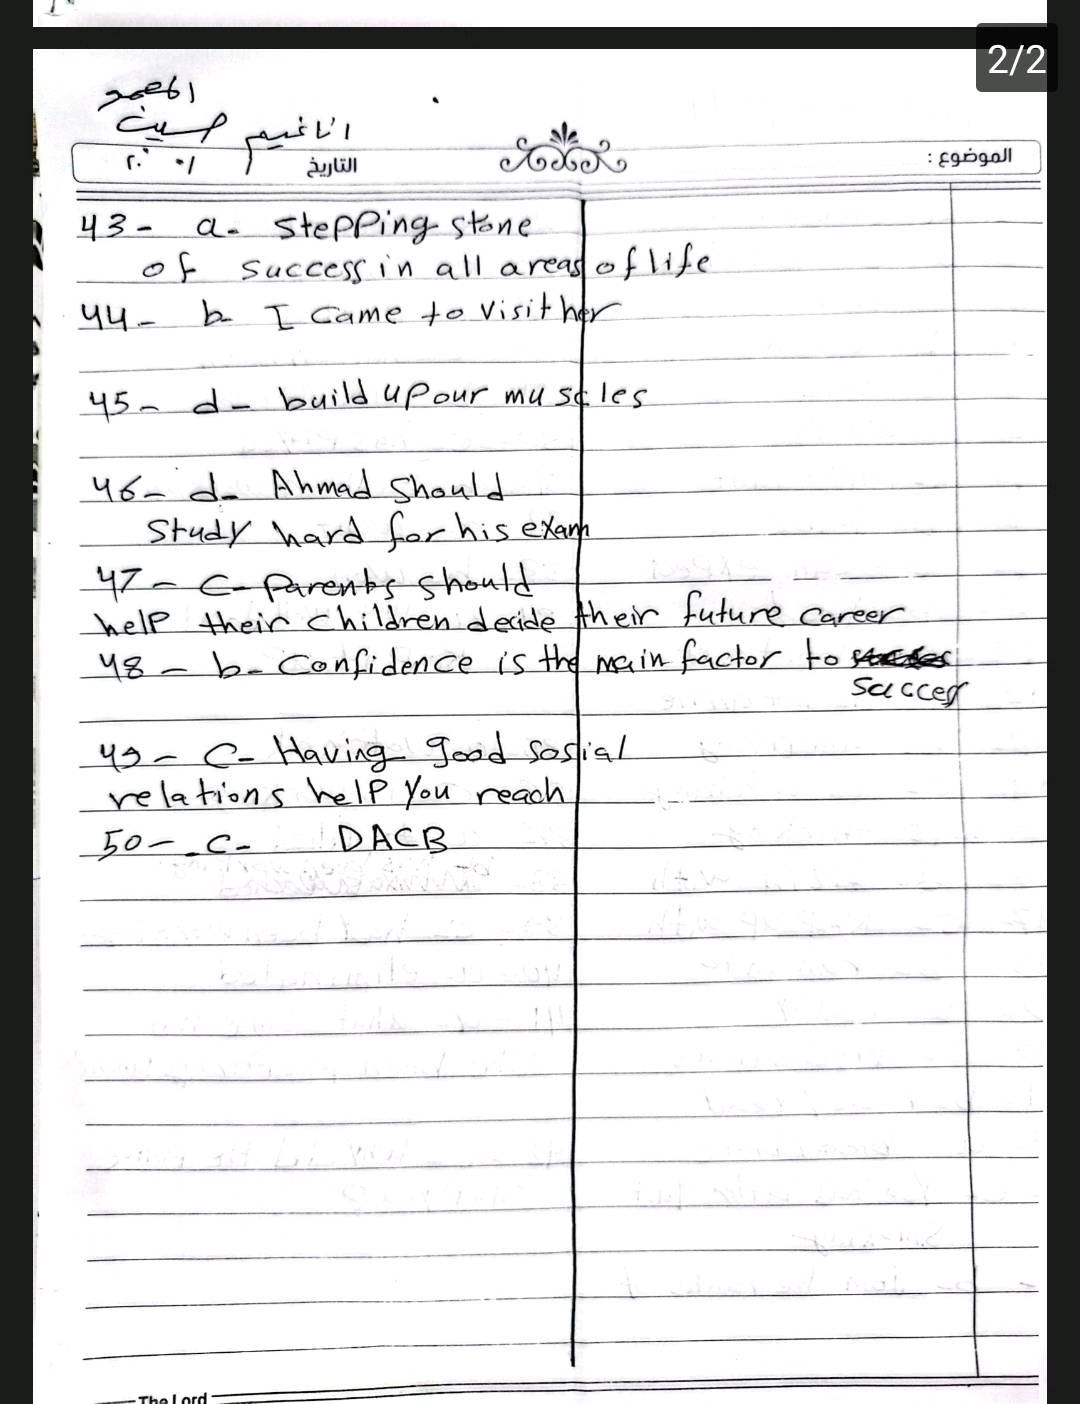 2/2
الموضوع :
التاريخ
43- a- stepping stone
of success in all areas of life
44- b- I came to visit her
45- d- build up our muscles
46- d- Ahmad should
study hard for his exam
47- c- Parents should
help their children decide their future career
48- b- Confidence is the main factor to
success
49- c- Having good sosial
relations help you reach
50- c- DACB
The Lord